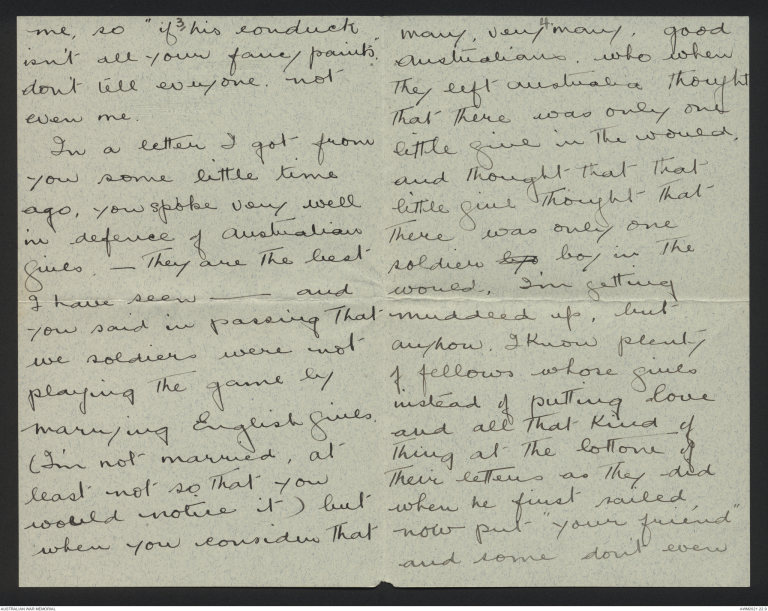 3.
me, so "if his conduck
isn't all your fancy paints".
don't tell everyone. not
even me.
In a letter I got from
you some little time
ago, you spoke very well
in defence of Australian
girls. — They are the best
I have seen —— and
you said in passing that
we soldiers were not
playing the game by
marrying English girls.
(I'm not married, at
least not so that you
would notice it) but
when you consider that
4.
many, very many, good
Australians, who when
they left Australia thought
that there was only one
little girl in the world,
and thought that that
little girl thought that
there was only one
soldier byo boy in the
world, I'm getting
muddled up, but
anyhow, I know plenty
of fellows whose girls
instead of putting love
and all that kind of
thing at the bottom of
their letters as they did
when he first sailed,
now put "your friend"
and some don't even
AUSTRALIAN WAR MEMORIAL